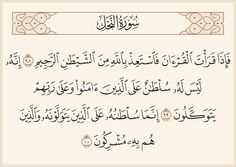 سُورَةُ النَّحْلِ
فَإِذَا قَرَأْتَ الْقُرْءَانَ فَاسْتَعِذْ بِاللَّهِ مِنَ الشَّيْطَٰنِ الرَّجِيمِ ٩٨ إِنَّهُۥ
لَيْسَ لَهُۥ سُلْطَٰنٌ عَلَى الَّذِينَ ءَامَنُوا۟ وَعَلَىٰ رَبِّهِمْ
يَتَوَكَّلُونَ ٩٩ إِنَّمَا سُلْطَٰنُهُۥ عَلَى الَّذِينَ يَتَوَلَّوْنَهُۥ وَالَّذِينَ
هُم بِهِۦ مُشْرِكُونَ ١٠٠